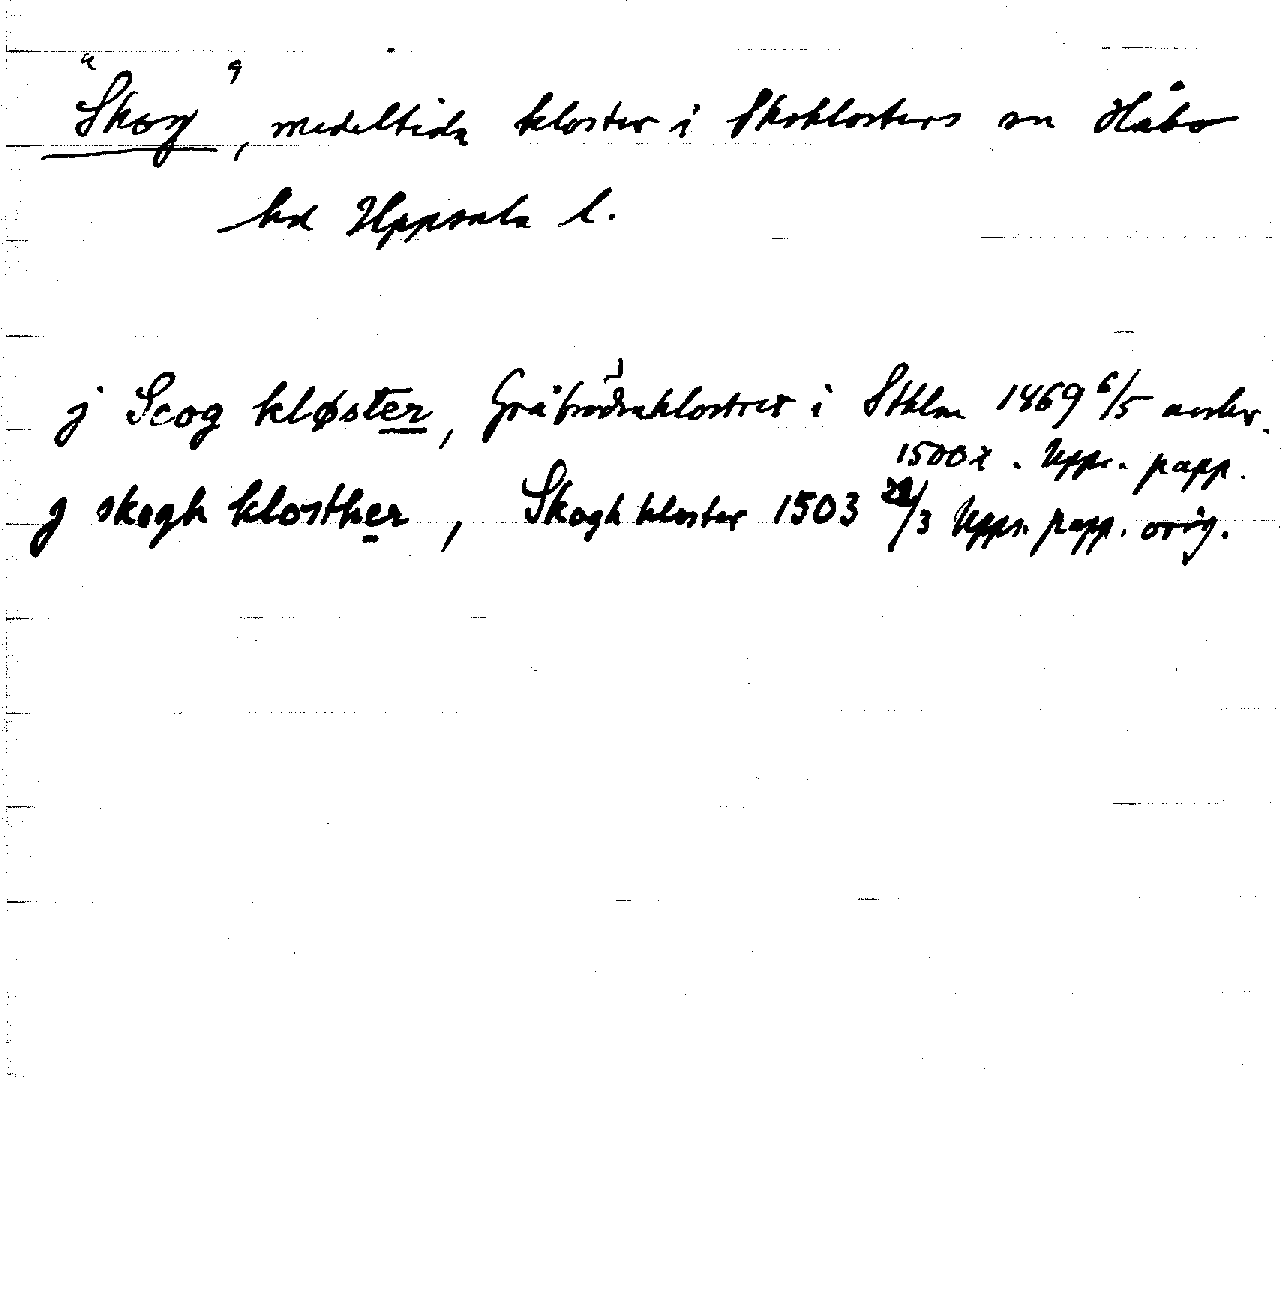 "Skog", medeltida kloster i Skoklosters sn Håbo
hd Uppsala l.
j Scog kløster, Gråbrödraklostret i Sthlm 1469 6/5 avskr.
1500t. Upps. papp.
j skogh klosther, Skogh kloster 1503 /3 Upps. papp. orig.